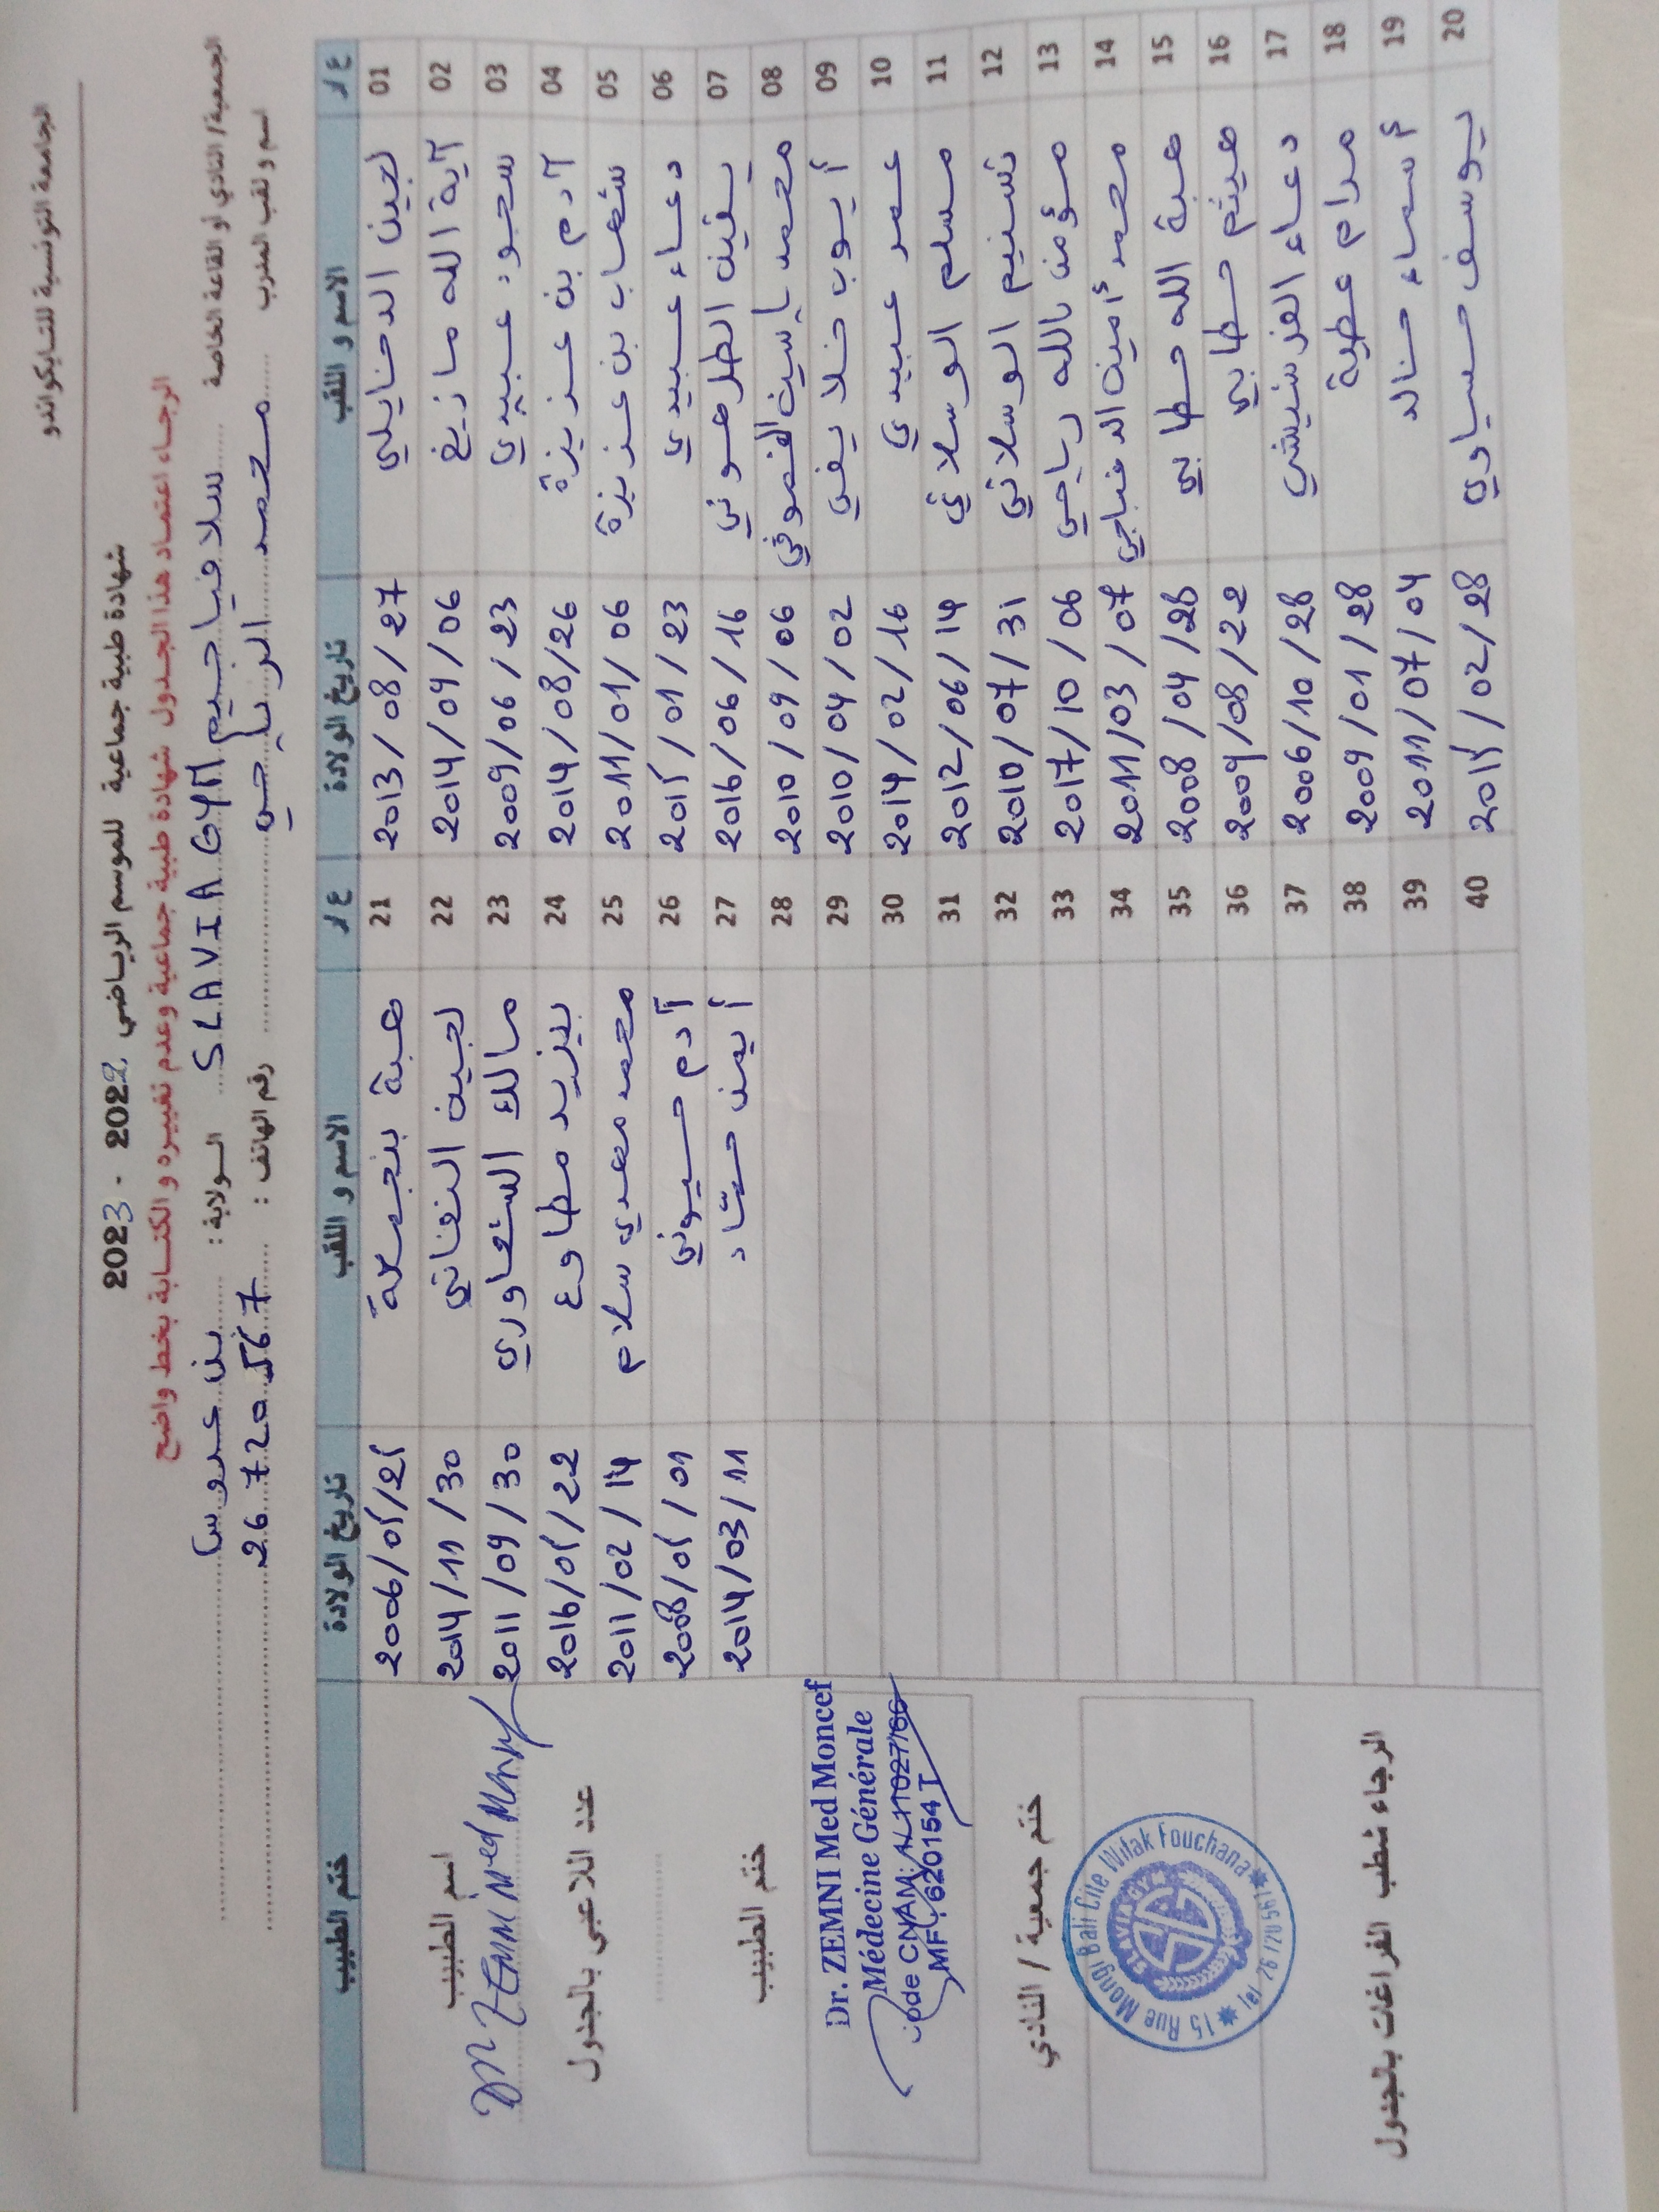 الجامعة التونسية للتايكواندو
شهادة طبية جماعية للموسم الرياضي 2022 - 2023
الرجاء اعتماد هذا الجدول شهادة طبية جماعية وعدم تغييره و الكتابة بخط واضح
الجمعية/ النادي أو القاعة الخاصة سلافيا جيم SLAVIA GYM الولاية : بن عروس
اسم و لقب المدرب محمد الرياحي رقم الهاتف : 26 720 567
ع/ر الاسم و اللقب تاريخ الولادة ع/ر الاسم و اللقب تاريخ الولادة ختم الطبيب
01 لجين الدخايلي 2013/08/27 21 هبة بنجمعة 2006/05/25
02 آية الله مازيغ 2014/09/06 22 لجين النفاتي 2014/11/30
03 سجود عبيدي 2009/06/23 23 مالك الشعاوري 2011/09/30
04 آدم بن عزيزة 2014/08/26 24 يزيد مطاوع 2016/05/22
05 شهاب بن عزيزة 2011/01/06 25 محمد مهدي سلام 2011/02/14
06 دعاء عبيدي 2015/01/23 26 آدم حسيوني 2008/05/01
07 يقين الطرهوني 2016/06/16 27 أيمن حشاد 2014/03/11
08 محمد ياسين 2010/09/06 28
09 أيوب خلايفي 2010/04/02 29
10 عمر عبيدي 2014/02/16 30
11 مسلم الوسلاتي 2012/06/14 31
12 تسنيم الوسلاتي 2010/07/31 32
13 مؤمن بالله رياحي 2017/10/06 33
14 محمد أمين 2011/03/07 34
15 هبة الله حطابي 2008/04/28 35
16 هيثم حطابي 2009/08/22 36
17 دعاء الفرشيشي 2006/10/28 37
18 مرام عطية 2009/01/28 38
19 أسماء خالد 2011/07/04 39
20 يوسف حساوي 2015/02/28 40
اسم الطبيب
Dr Zemni Med Moncef
عدد اللاعبي بالجدول
ختم الطبيب
Dr. ZEMNI Med Moncef
Médecine Générale
Code CNAM:
MF: 620154 T
ختم جمعية / النادي
15 Rue Mongi Bali Cite Wifak Fouchana
Tel 26 720 567
SLAVIA GYM
الرجاء شطب الفراغات بالجدول